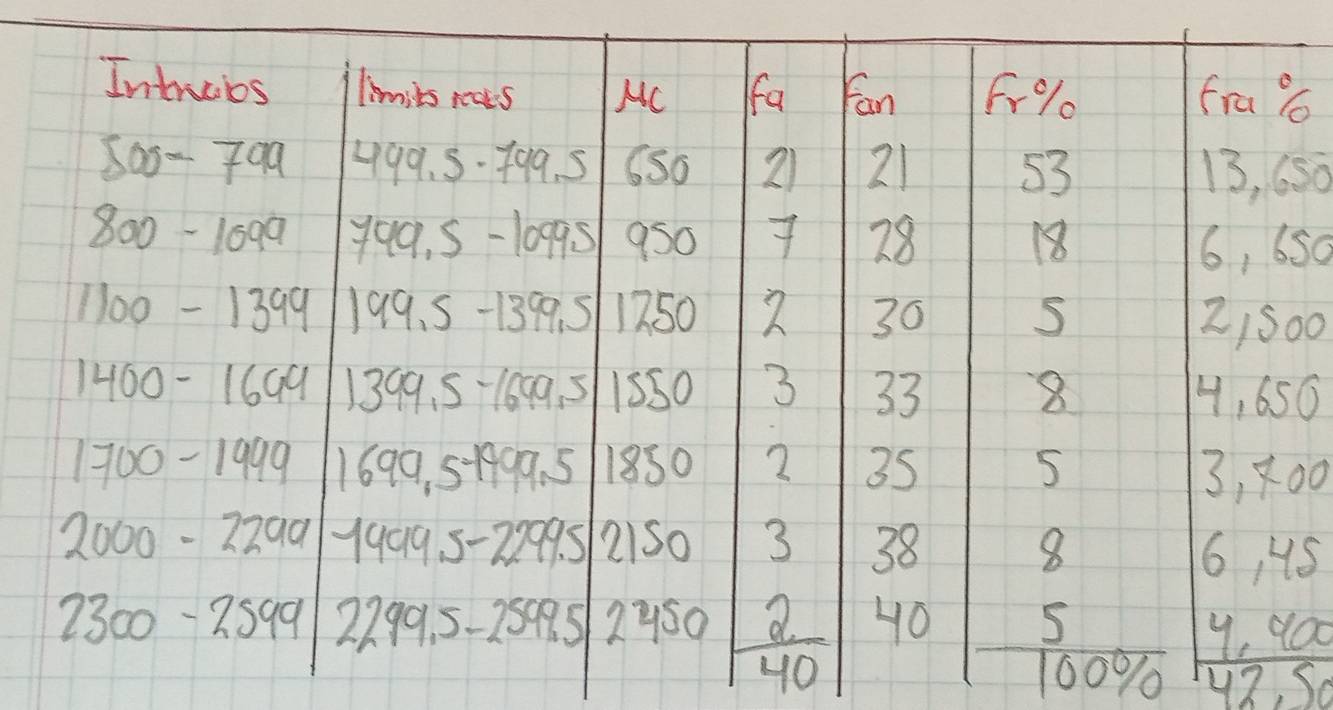 Intervalos limites reales Mc fa fan Fr% fra %
500 - 799 499.5 - 799.5 650 21 21 53 13,650
800 - 1099 799.5 - 1099.5 950 7 28 18 6,650
1100 - 1399 199.5 - 1399.5 1250 2 30 5 2,500
1400 - 1699 1399.5 - 1699.5 1550 3 33 8 4,650
1700 - 1999 1699.5 - 1999.5 1850 2 35 5 3,700
2000 - 2299 1999.5 - 2299.5 2150 3 38 8 6,45
2300 - 2599 2299.5 - 2599.5 2450 2 40 5 4,900
40 100% 42,50